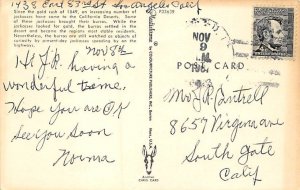 1938 Earl 83rd St Los Angeles Calif
Since the gold rush of 1849, an increasing number of
jackasses have come to the California Desert. Some
of these jackasses brought their burros. While the
jackasses looked for gold, the burros settled in the
desert and became the most stable desert residents.
Nevertheless, the burros are still watched as objects of
curiosity by present-day jackasses speeding by on the
highways.
P23639
Nov 8th
Hi J.R. having a
wonderful time.
Hope you are OK
see you soon
Norma
NOV
9
POST CARD
Mr J.R. Cantrell
8659 Virginia ave
South Gate
Calif